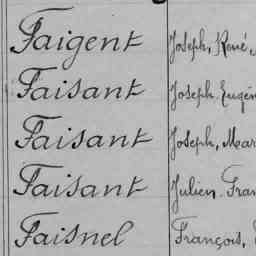 Faigent Joseph, René,
Faisant Joseph Eugén
Faisant Joseph, Mar
Faisant Julien Fran
Faisnel François,